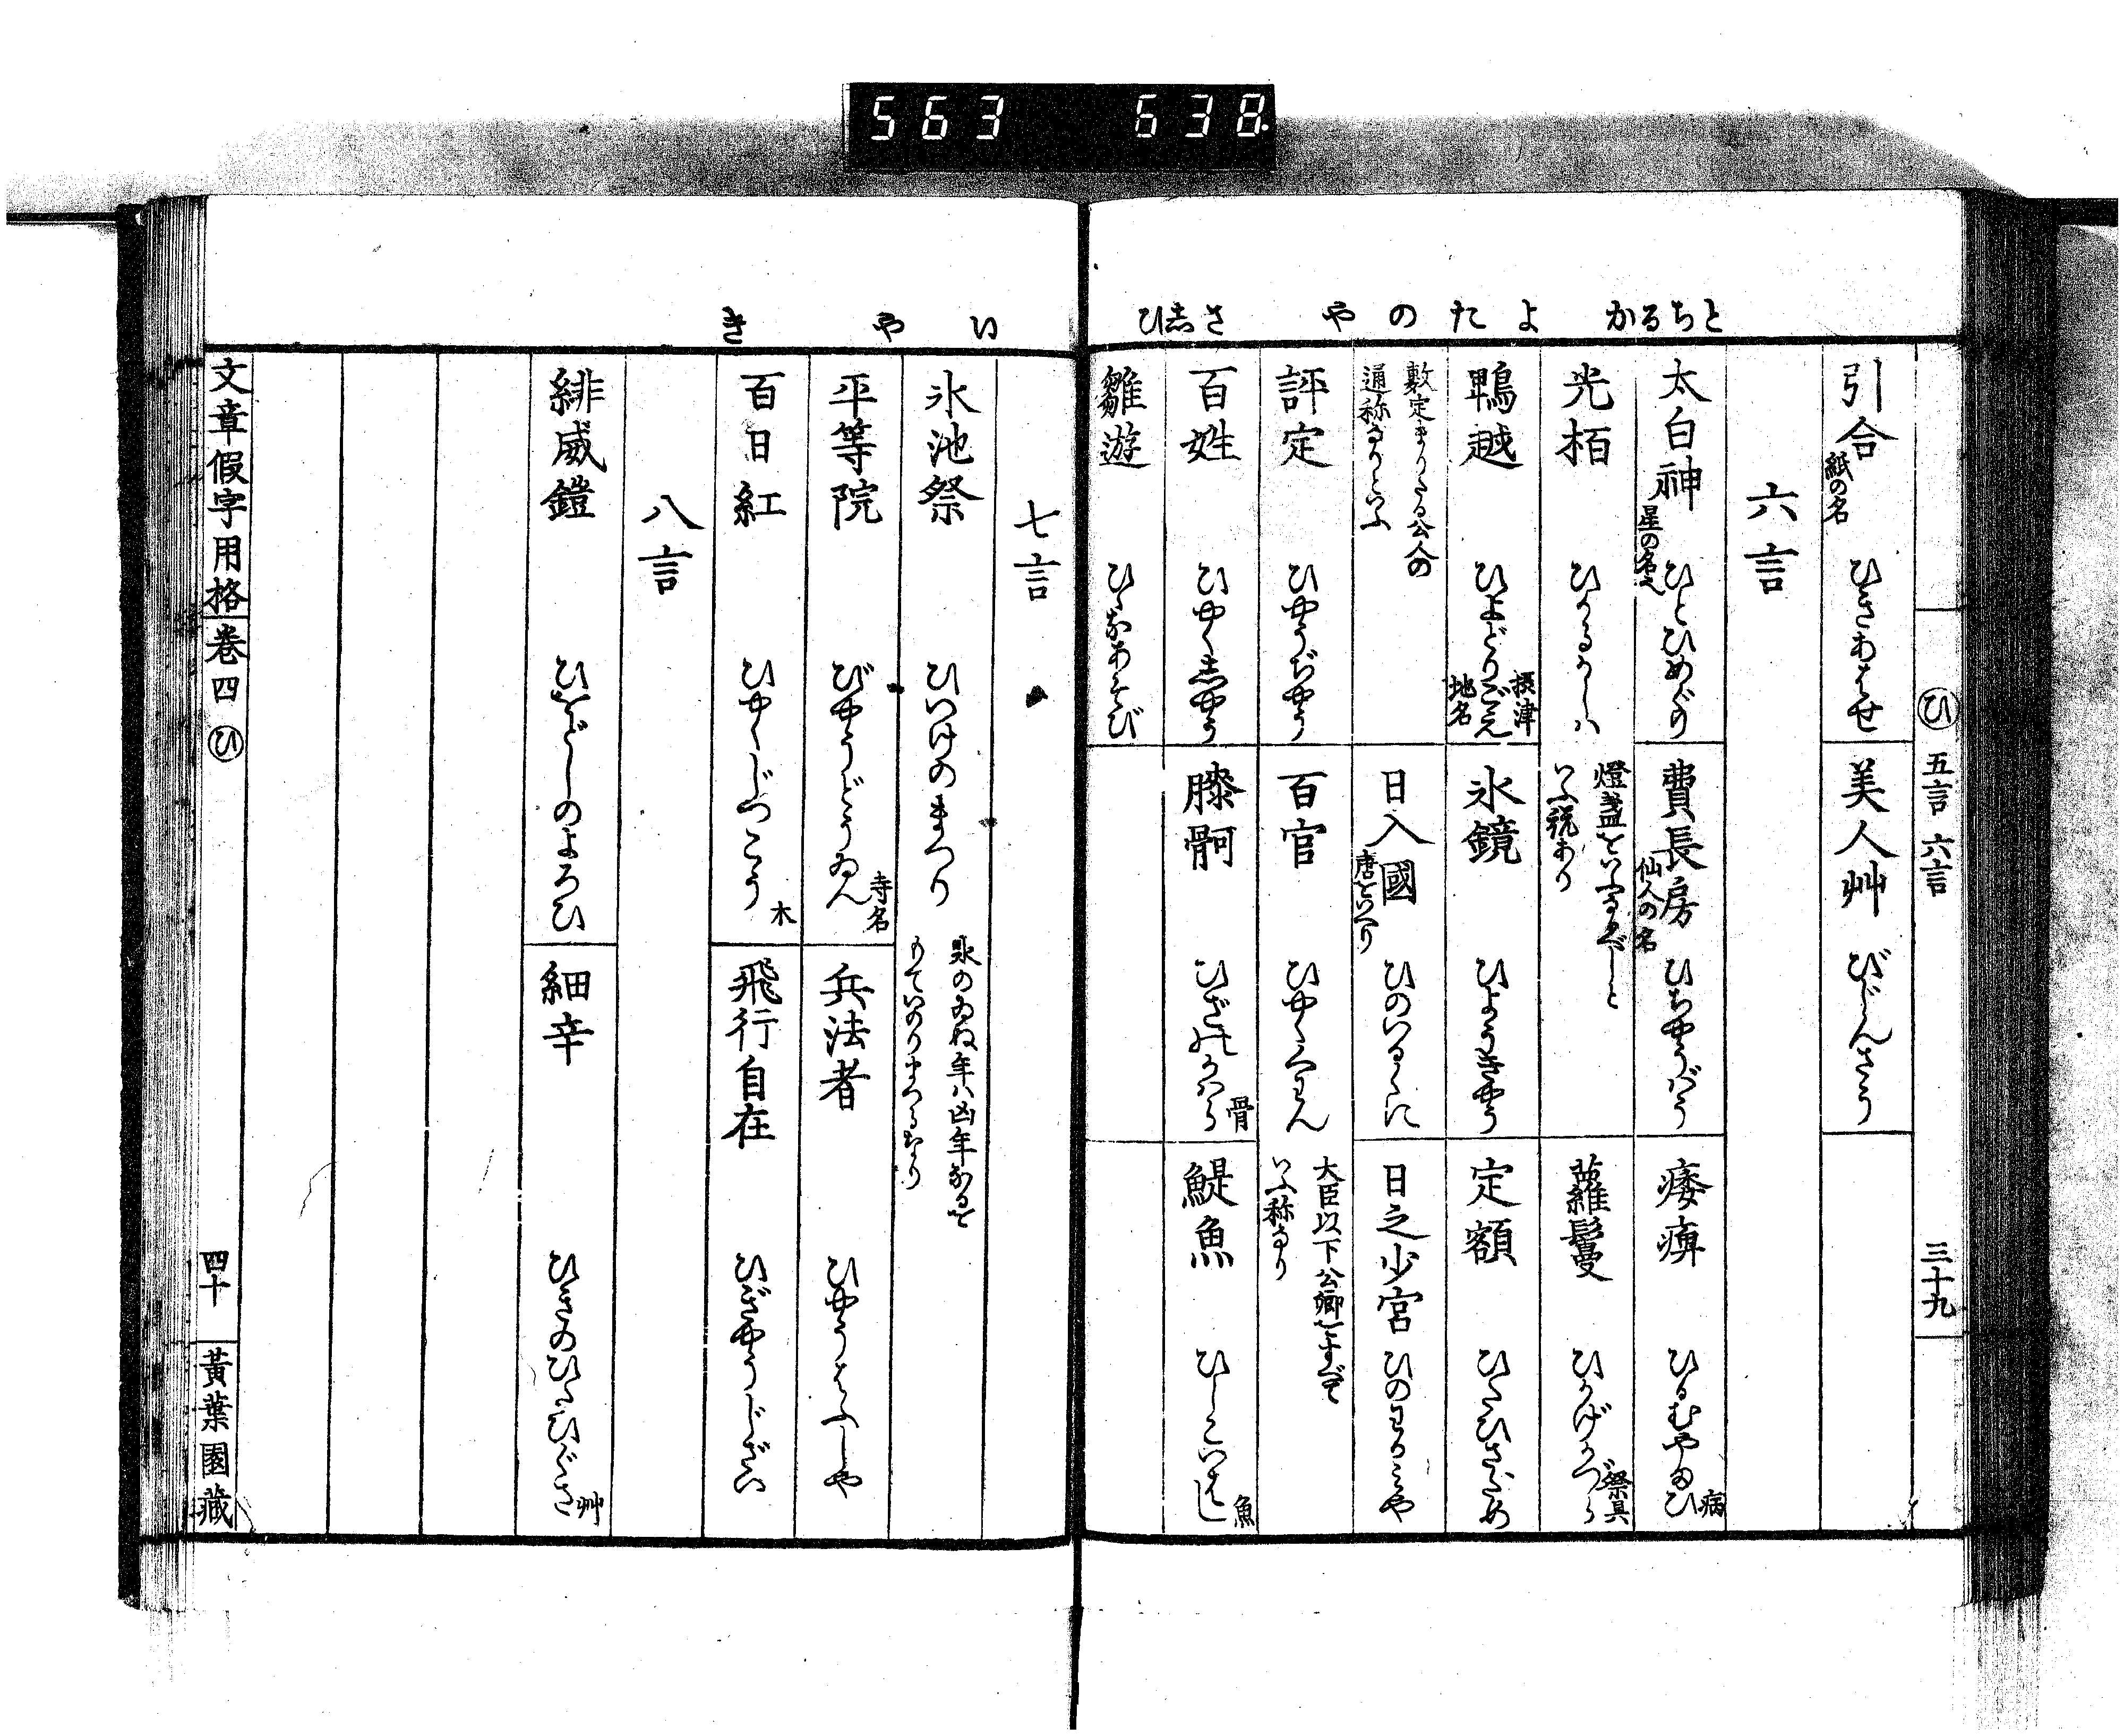 563 638
とちるかよたのやさしひ
ひ 五言 六言 三十九
引合 紙の名 ひきあはせ
美人艸 びじんさう
六言
太白神 星の名 ひとひめぐり
費長房 仙人の名 ひちやうばう
痿痺 ひるむやまひ 病
光栢 ひかるかしハ
燈盞をいふなるべしと
いふ説あり
蘿鬘 ひかげかづら 祭具
鵯越 ひよどりごえ 摂津 地名
氷鏡 ひようきやう
定額 ひたひさだめ
敷定まりたる公人の
通称なりといふ
日入國 唐をいへり ひのいるくに
日之少宮 ひのわかみや
評定 ひやうぢやう
百官 ひやくくわん
大臣以下公卿まですべて
いふ称なり
百姓 ひやくしやう
膝䯊 ひざのかハら 骨
鯷魚 ひしこいはし 魚
雛遊 ひゝなあそび
いやき
七言
氷池祭 ひいけのまつり
氷のゐぬ年ハ凶年なるを
もていのりまつるなり
平等院 びやうどうゐん 寺名
兵法者 ひやうはふしや
百日紅 ひやくじつこう 木
飛行自在 ひぎやうじざい
八言
緋威鎧 ひをどしのよろひ
細辛 ひきのひたひぐさ 艸
文章假字用格 巻四 ひ 四十 黃葉園藏